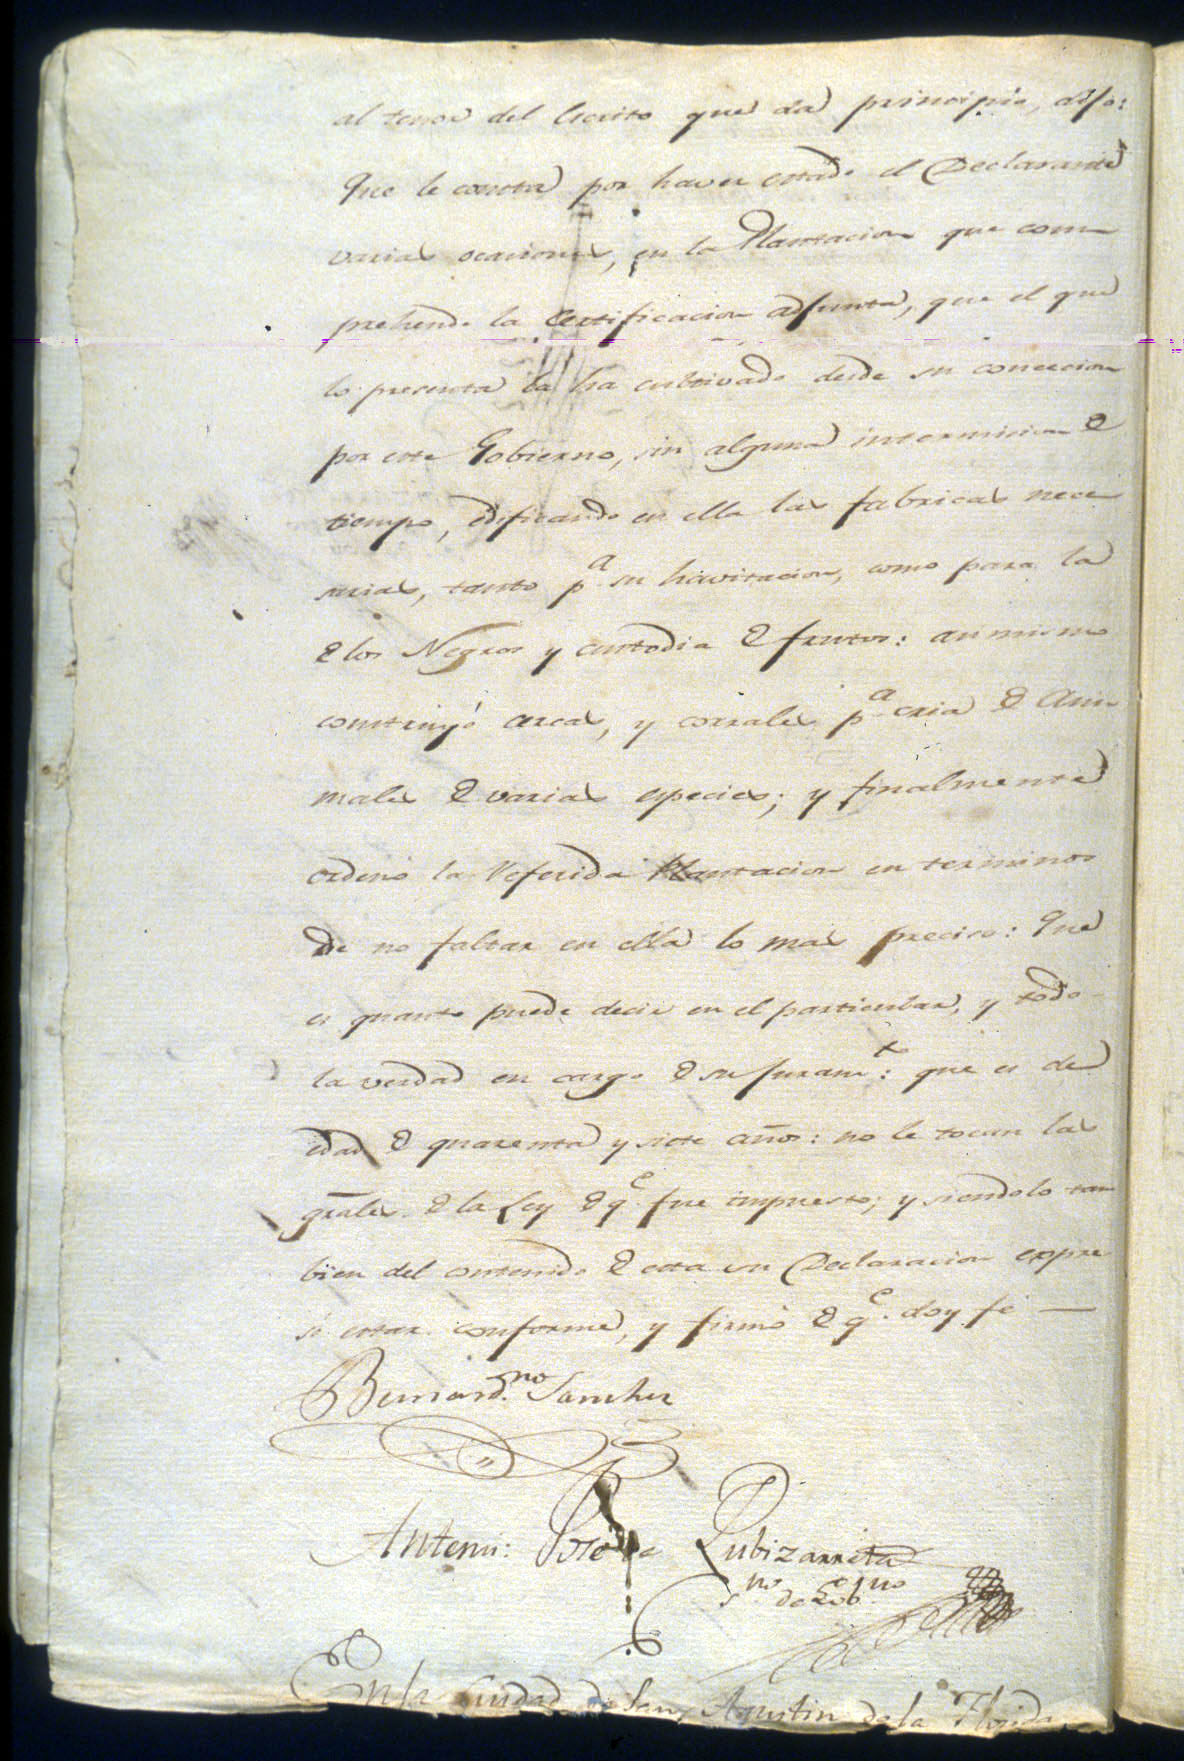 al tenor del Escrito que da principio, dijo:
Que le consta por haver estado el Declarante
varias ocaciones, en la Plantacion que com
prehende la Certificacion adjunta, que el que
lo presenta la ha cultivado desde su concecion
por este Gobierno, sin alguna intermision de
tiempo, edificando en ella las fabricas nece
sarias, tanto pa. su havitacion, como para la
de los Negros y custodia de frutos: asi mismo
construyó arcas, y corrales pa. cria de Ani
males de varias especies; y finalmente
ordenó la Referida Plantacion en terminos
De no faltar en ella lo mas preciso: Que
es quanto puede decir en el particular, y todo
la verdad en cargo de su juramto: que es de
edad de quarenta y siete años: no le tocan las
grales. de la Ley de qe. fue impuesto; y siendolo tam
bien del contenido de esta su Declaracion expre
só estar conforme, y firmó de qe. doy fé —
Bernardno. Sanchez
Antemi: José de Zubizarreta
Sno. de Gobno
En la Ciudad de San Agustin de la Florida